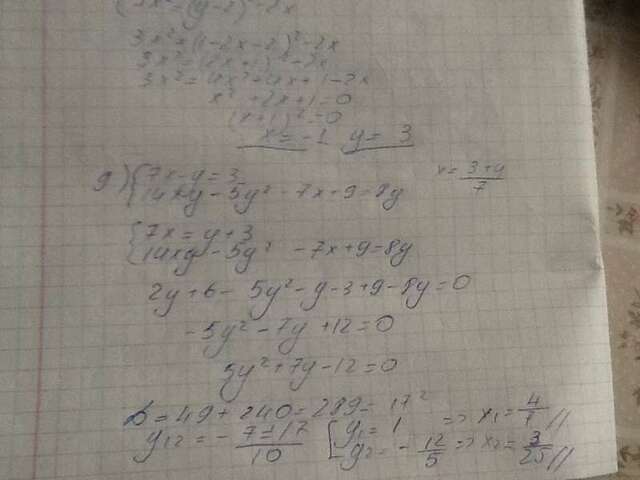 3x² = (y-2)² - 2x
3x² = (1-2x-2)² - 2x
3x² = (2x+1)² - 2x
3x² = 4x² + 4x + 1 - 2x
x² + 2x + 1 = 0
(x+1)² = 0
x = -1 y = 3
g) { 7x - y = 3
14xy - 5y² - 7x + 9 = 8y
x = 3+y / 7
{ 7x = y + 3
14xy - 5y² - 7x + 9 = 8y
2y + 6 - 5y² - y - 3 + 9 - 8y = 0
-5y² - 7y + 12 = 0
5y² + 7y - 12 = 0
D = 49 + 240 = 289 = 17²
y₁₂ = - 7±17 / 10 [ y₁ = 1 => x₁ = 4/7 //
y₂ = - 12/5 => x₂ = 3/25 //